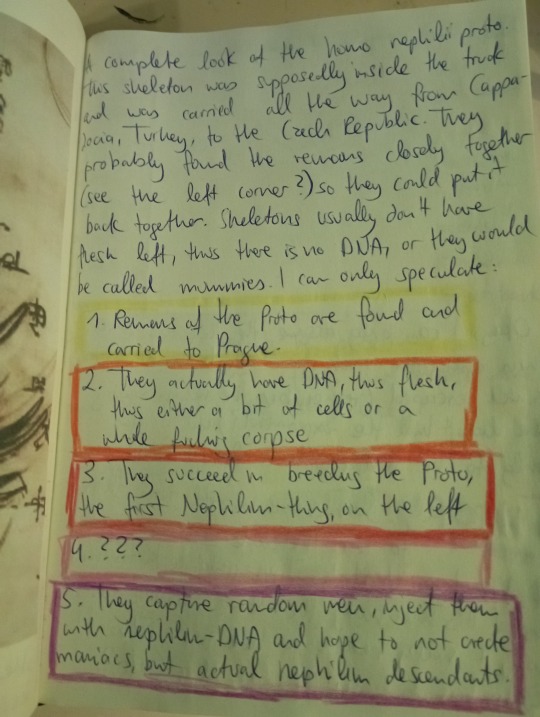 A complete look at the homo nephilii proto.
This skeleton was supposedly inside the truck
and was carried all the way from Cappa-
docia, Turkey, to the Czech Republic. They
probably found the remains closely together
(see the left corner?) so they could put it
back together. Skeletons usually don't have
flesh left, thus there is no DNA, or they would
be called mummies. I can only speculate:
1. Remains of the Proto are found and
carried to Prague.
2. They actually have DNA, thus flesh,
thus either a bit of cells or a
whole fucking corpse
3. They succeed in breeding the Proto,
the first Nephilim-thing, on the left
4. ???
5. They capture random men, inject them
with nephilim-DNA and hope to not create
maniacs, but actual nephilim descendants.